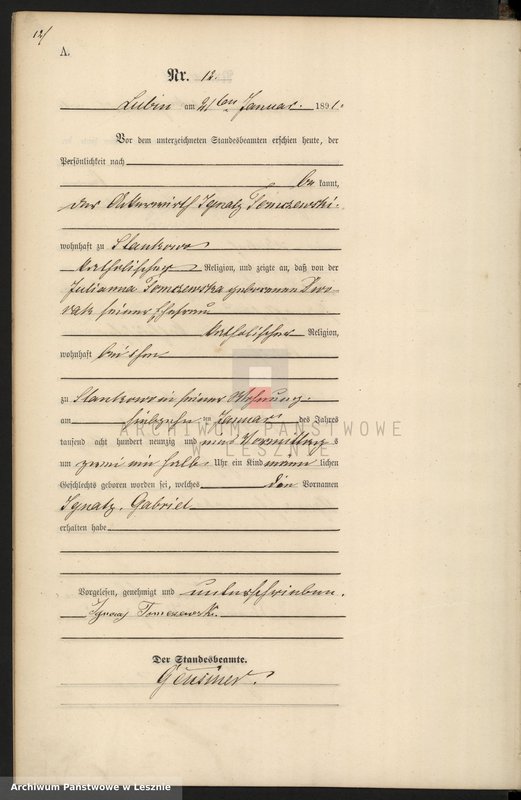 12/
A.
Nr. 12.
Lubin am 21ten Januar. 1891.
Vor dem unterzeichneten Standesbeamten erschien heute, der
Persönlichkeit nach
be kannt,
der Ackerwirth Ignatz Tomczewski.
wohnhaft zu Stankowo
katholischer Religion, und zeigte an, daß von der
Julianna Tomczewska geborenen Dwo-
rak seiner Ehefrau
katholischer Religion,
wohnhaft bei ihm
zu Stankowo in seiner Wohnung.
am siebzehn ten Januar des Jahres
tausend acht hundert neunzig und eins Vormittag s
um zwei ein halb Uhr ein Kind männ lichen
Geschlechts geboren worden sei, welches den Vornamen
Ignatz, Gabriel
erhalten habe
Vorgelesen, genehmigt und unterschrieben.
Ignacy
Der Standesbeamte.
ARCHIWUM PAŃSTWOWE
W LESZNIE
Archiwum Panstwowe w Lesznie